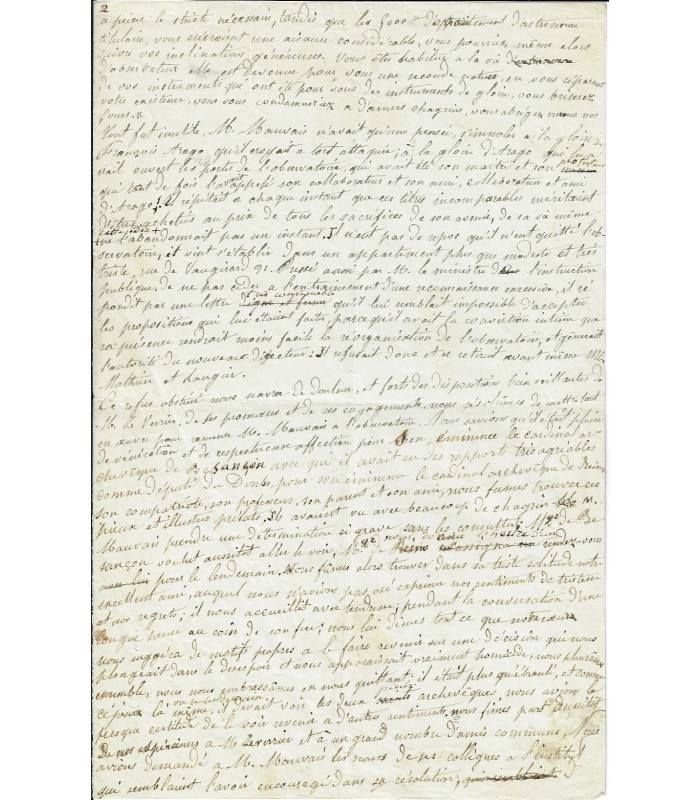 2
à peine le stricte nécessaire, tandis que les 5000 d'appointement d'astronome
titulaire, vous créeraient une aisance considérable, vous pourriez même alors
suivre vos inclinations généreuses. Vous êtes habitué à la vie
d'observateur elle est devenue pour vous une seconde nature, en vous séparant
de vos instruments qui ont été pour vous des instruments de gloire, vous briserez
votre existence, vous vous condamnerez à d'amers chagrins, vous abrégez même vos
jours.
Tout fut inutile, M. Mauvais n'avait qu'une pensée, s'immoler à la gloire de
François Arago qu'il croyait à tort attaquée; à la gloire d'Arago qui lui a
vait ouvert les portes de l'observatoire, qui avait été son maître et son
qui tant de fois l'avait appelé son collaborateur et son ami, collaborateur et ami
d'Arago! Il répétait à chaque instant que ces titres incomparables méritaient
d'être achetés au prix de tous les sacrifices de son avenir, de sa vie même
ne l'abandonnait pas un instant, Il n'eut pas de repos qu'il n'eut quitté l'ob-
servatoire, il vint s'établir dans un appartement plus que modeste et très
triste, rue de Vaugirard 91. Pressé aussi par M. le ministre de l'instruction
publique de ne pas céder à l'entraînement d'une reconnaissance excessive, il ré
pondit par une lettre très convenable digne et ferme qu'il lui semblait impossible d'accepter
les propositions qui lui étaient faites, parcequ'il avait la conviction intime que
sa présence rendrait moins facile la réorganisation de l'observatoire, et gênerait
l'autorité du nouveau directeur: Il refusait donc et se retirait avant même MM.
Mathieu et Laugier.
Ce refus obstiné nous navra de douleur, et forts des dispositions bienveillantes de
M. Le Verrier, de ses promesses et de ses engagements, nous résolûmes de mettre tout
en œuvre pour ramener M. Mauvais à l'observatoire. Nous savions qu'il était plein
de vénération et de respectueuse affection pour Son, éminence le cardinal ar-
chevêque de Besançon avec qui il avait eu des rapports très agréables
comme député du Doubs, pour son éminence le cardinal archevêque de Reims
son compatriote, son professeur, son parent et son ami, nous fumes trouver ces
pieux et illustres prélats, Ils avaient vu avec beaucoup de chagrin M.
Mauvais prendre une détermination si grave sans les consulter. Mgr de Be
sançon voulut aussitôt aller le voir, Mgr de Reims rendez-vous
pour le lendemain. Nous fumes alors trouver dans sa triste solitude notre
excellent ami, auquel nous n'avions pas osé exprimer nos sentiments de tristesse
et nos regrets; il nous accueillit avec tendresse; pendant la conversation d'une
longue heure au coin de son feu; nous lui dîmes tout ce que notre cœur
nous suggéra de motifs propres à le faire revenir sur une décision qui nous
plongeait dans le désespoir et nous apparaissait vraiment homicide, nous pleurâmes
ensemble, nous nous embrassâmes en nous quittant; il était plus qu'ébranlé, et comme
ce jour là même, ou le lendemain il devait voir les deux archevêques, nous avions la
presque certitude de le voir revenir à d'autres sentiments, nous fimes part aussitôt
De nos espérances à M. Leverrier et à un grand nombre d'amis communs, Nous
avions demandé à M. Mauvais les noms de ses collègues à l'institut
qui semblaient l'avoir encouragé dans sa résolution,